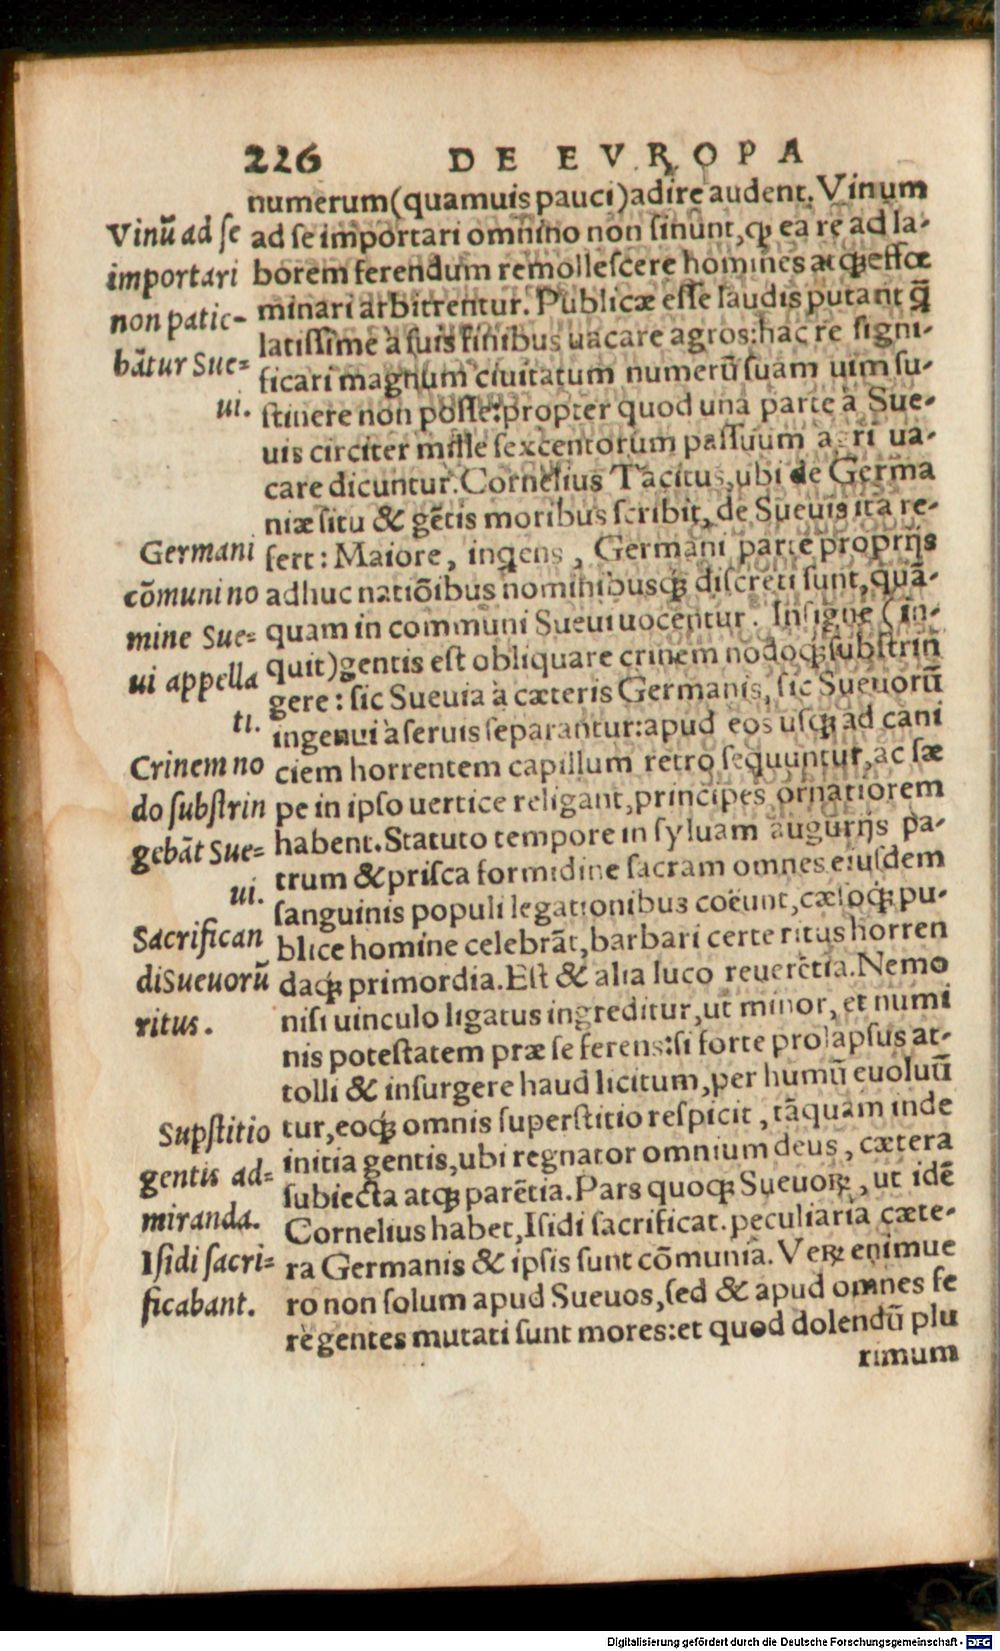 226 DE EVROPA
numerum(quamuis pauci)adire audent. Vinum
ad se importari omnino non sinunt,ꝙ ea re ad la-
borem ferendum remollescere homines atqꝫ effœ
minari arbitrentur. Publicæ esse laudis putant q̃
latissime à suis finibus uacare agros:hac re signi-
ficari magnum ciuitatum numerũ suam uim su-
stinere non posse:propter quod una parte à Sue-
uis circiter mille sexcentorum passuum agri ua-
care dicuntur. Cornelius Tacitus,ubi de Germa
niæ situ & gẽtis moribus scribit, de Sueuis ita re-
fert: Maiore, inqens, Germani parte proprijs
adhuc natiõibus nominibusqꝫ discreti sunt,quã-
quam in communi Sueui uocentur. Insigne (in-
quit)gentis est obliquare crinem nodoqꝫ substrin
gere: sic Sueuia à cæteris Germanis, sic Sueuorũ
ingenui à seruis separantur:apud eos usqꝫ ad cani
ciem horrentem capillum retro sequuntur,ac sæ
pe in ipso uertice religant,principes ornatiorem
habent. Statuto tempore in syluam augurijs pa-
trum & prisca formidine sacram omnes eiusdem
sanguinis populi legationibus coëunt,cæsoqꝫ pu-
blice homine celebrãt,barbari certe ritus horren
daqꝫ primordia. Est & alia luco reuerẽtia. Nemo
nisi uinculo ligatus ingreditur,ut minor, et numi
nis potestatem præ se ferens:si forte prolapsus at-
tolli & insurgere haud licitum,per humũ euoluũ
tur,eoqꝫ omnis superstitio respicit, tãquam inde
initia gentis,ubi regnator omnium deus, cætera
subiecta atqꝫ parẽtia. Pars quoqꝫ Sueuoꝝ, ut idẽ
Cornelius habet,Isidi sacrificat. peculiaria cæte-
ra Germanis & ipsis sunt cõmunia. Veꝝ enimue
ro non solum apud Sueuos,sed & apud omnes fe
re gentes mutati sunt mores:et quod dolendũ plu
rimum
Vinũ ad se
importari
non patie-
bãtur Sue=
ui.
Germani
cõmuni no
mine Sue=
ui appella
ti.
Crinem no
do substrin
gebãt Sue=
ui.
Sacrifican
di Sueuorũ
ritus.
Supstitio
gentis ad=
miranda.
Isidi sacri=
ficabant.
Digitalisierung gefördert durch die Deutsche Forschungsgemeinschaft - DFG